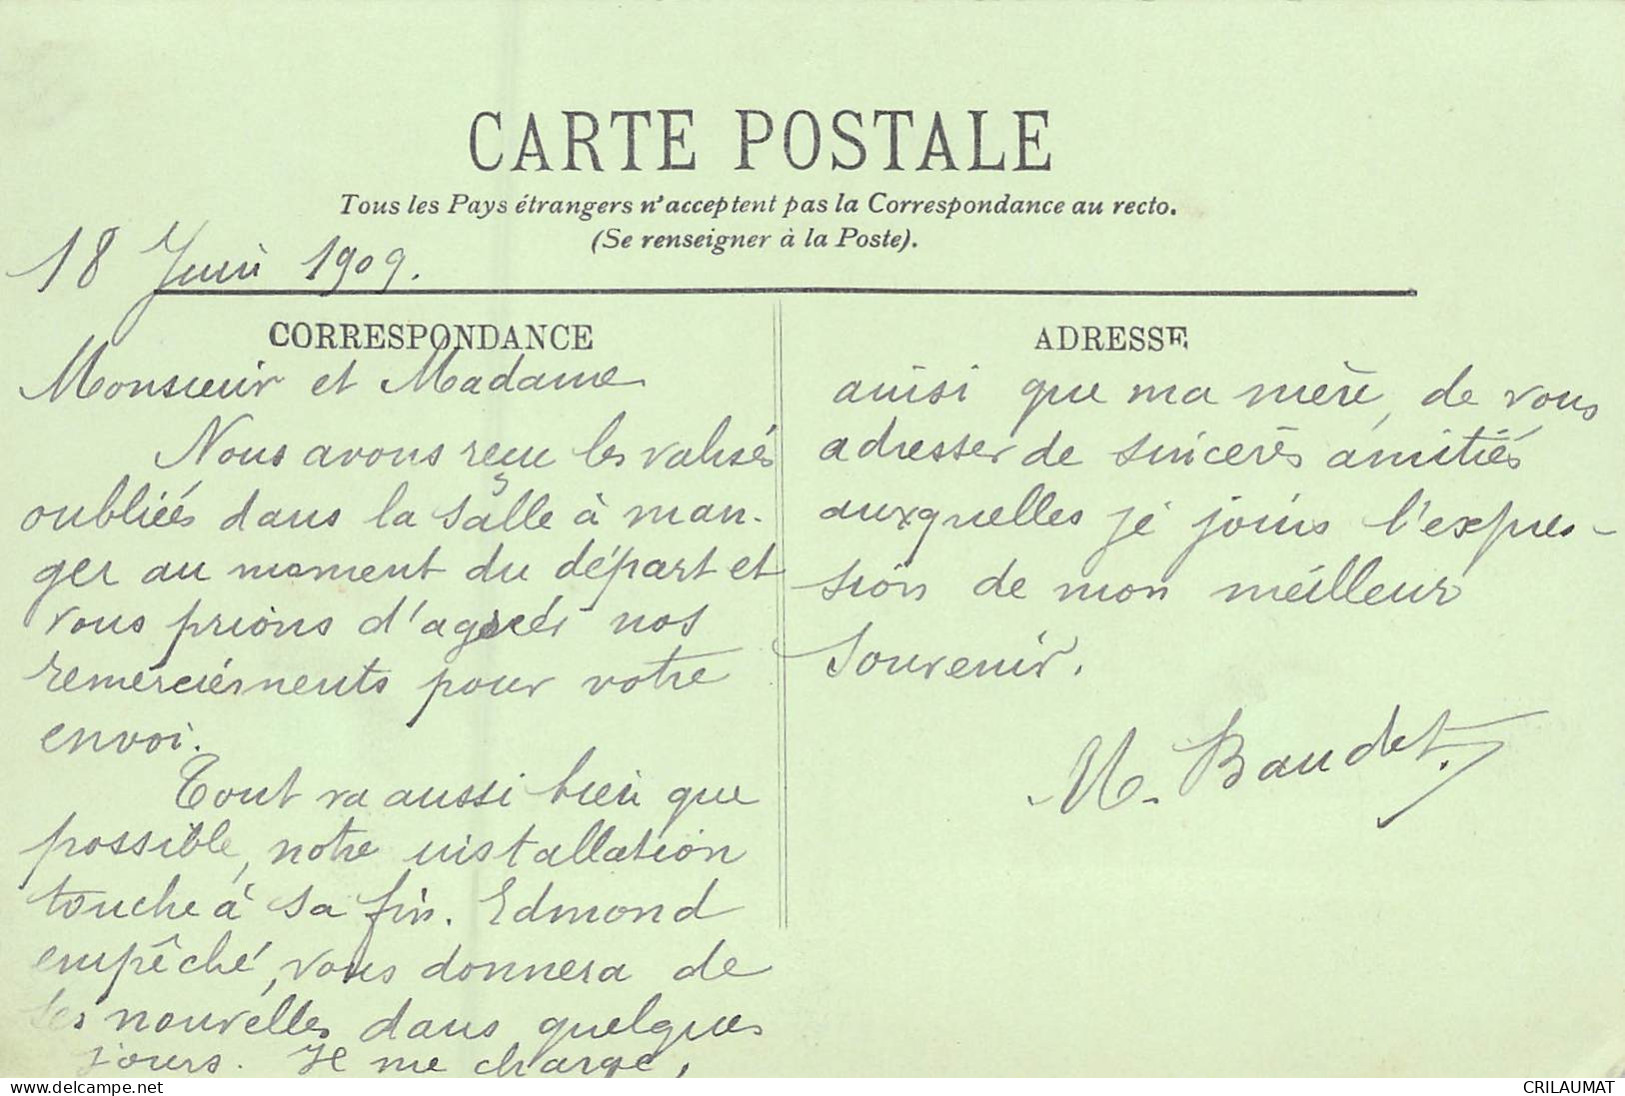 CARTE POSTALE
Tous les Pays étrangers n'acceptent pas la Correspondance au recto.
(Se renseigner à la Poste).
18 Juin 1909.
CORRESPONDANCE
Monsieur et Madame
Nous avons reçu les valises
oubliées dans la salle à man-
ger au moment du départ et
vous prions d'agréer nos
remerciements pour votre
envoi.
Tout va aussi bien que
possible, notre installation
touche à sa fin. Edmond
empêché, vous donnera de
ses nouvelles dans quelques
jours. Je me charge,
ADRESSE
ainsi que ma mère, de vous
adresser de sincères amitiés
auxquelles je joins l'expres-
sion de mon meilleur
souvenir.
M. Baudet.
delcampe.net
CRILAUMAT